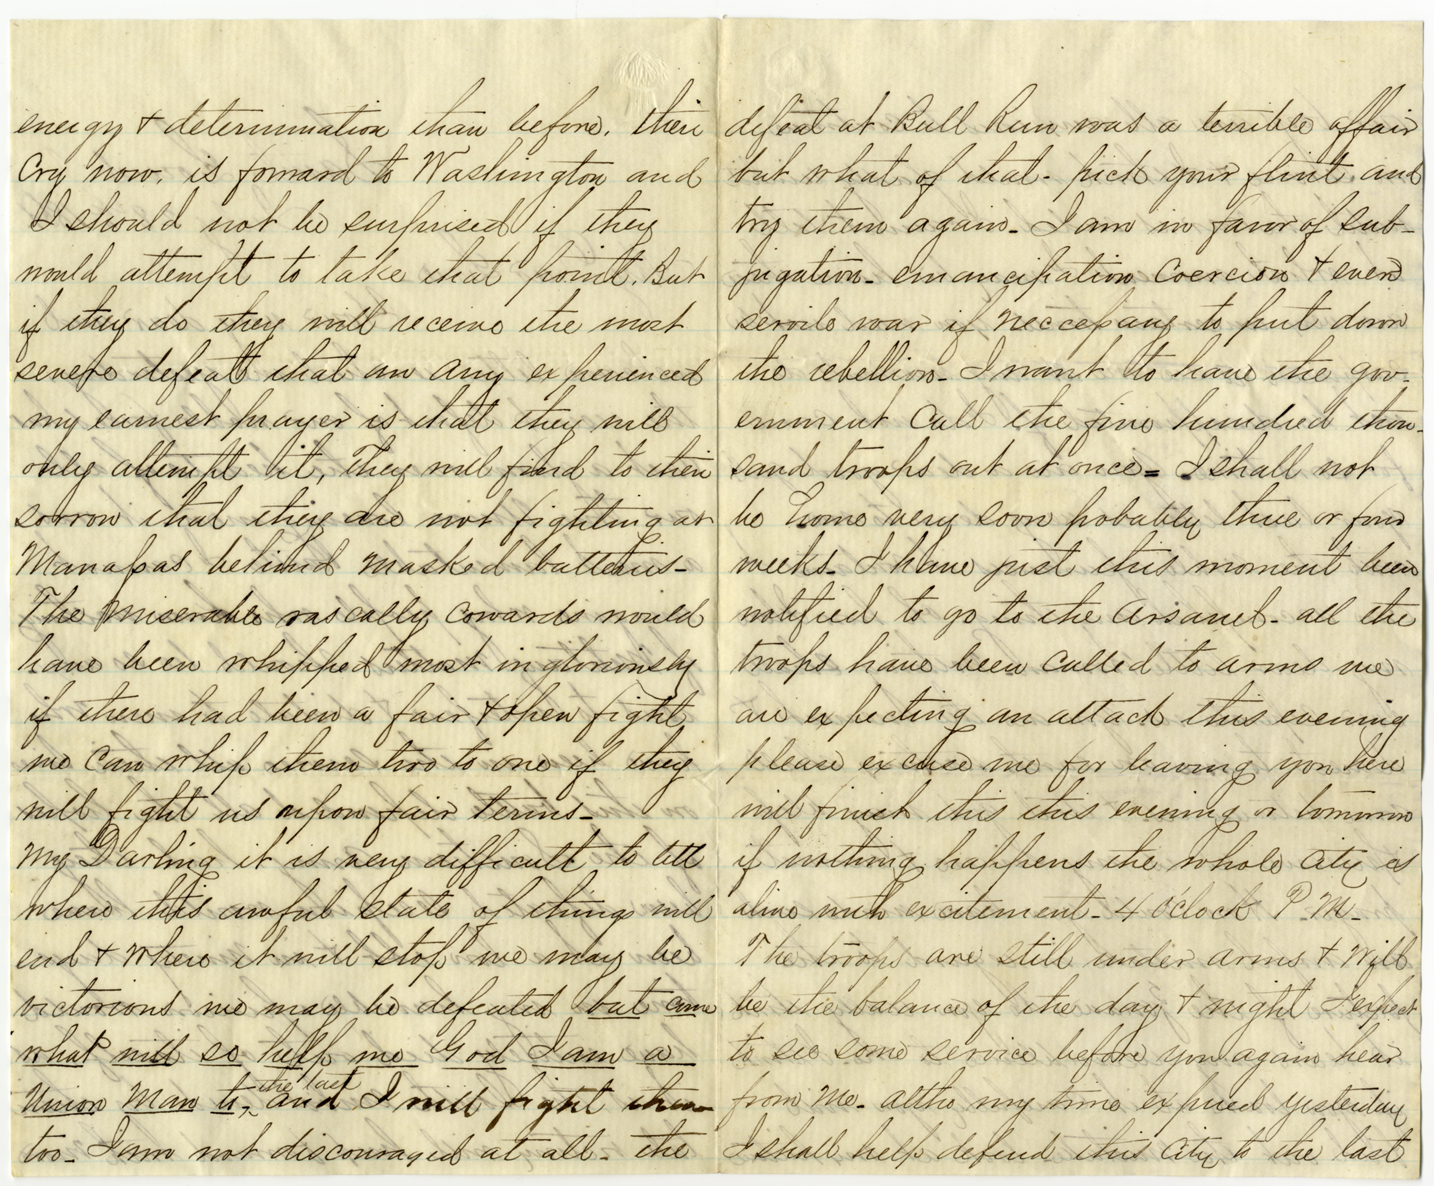 energy & determination than before. their
Cry now. is forward to Washington and
I should not be surprised if they
would attempt to take that point. But
if they do they will receive the most
severe defeat that an Amy experienced
my earnest prayer is that they will
only attempt it, They will find to their
sorrow that they are not fighting at
Manasas behind Masked batteries-
The Miserable rascally Cowards would
have been whipped most ingloriously
if there had been a fair & open fight
we can whip them two to one if they
will fight us upon fair terms-
My Darling it is very difficult to tell
where this awful state of things will
end & where it will stop we may be
victorious we may be defeated but come
what will so help me God I am a
Union Man to the last and I will fight them
too- I am not discouraged at all- the
defeat at Bull Run was a terrible affair
but what of that- pick your flint and
try them again- I am in favor of Sub-
jugation- emancipation Coercion & even
servile war if neccessary to put down
the rebellion- I want to have the gov-
ernment Call the five hundred thou-
sand troops out at once= I shall not
be home very soon probably three or four
weeks- I have just this moment been
notified to go to the Arsanel- all the
troops have been Called to arms we
are expecting an attack this evening
please excuse me for leaving you here
will finish this this evening or tomorrow
if nothing happens the whole City is
alive with excitement- 4 O'clock P.M-
The troops are still under arms & will
be the balance of the day & night I expect
to see some service before you again hear
from Me- altho my time expired yesterday
I shall help defend this City to the last